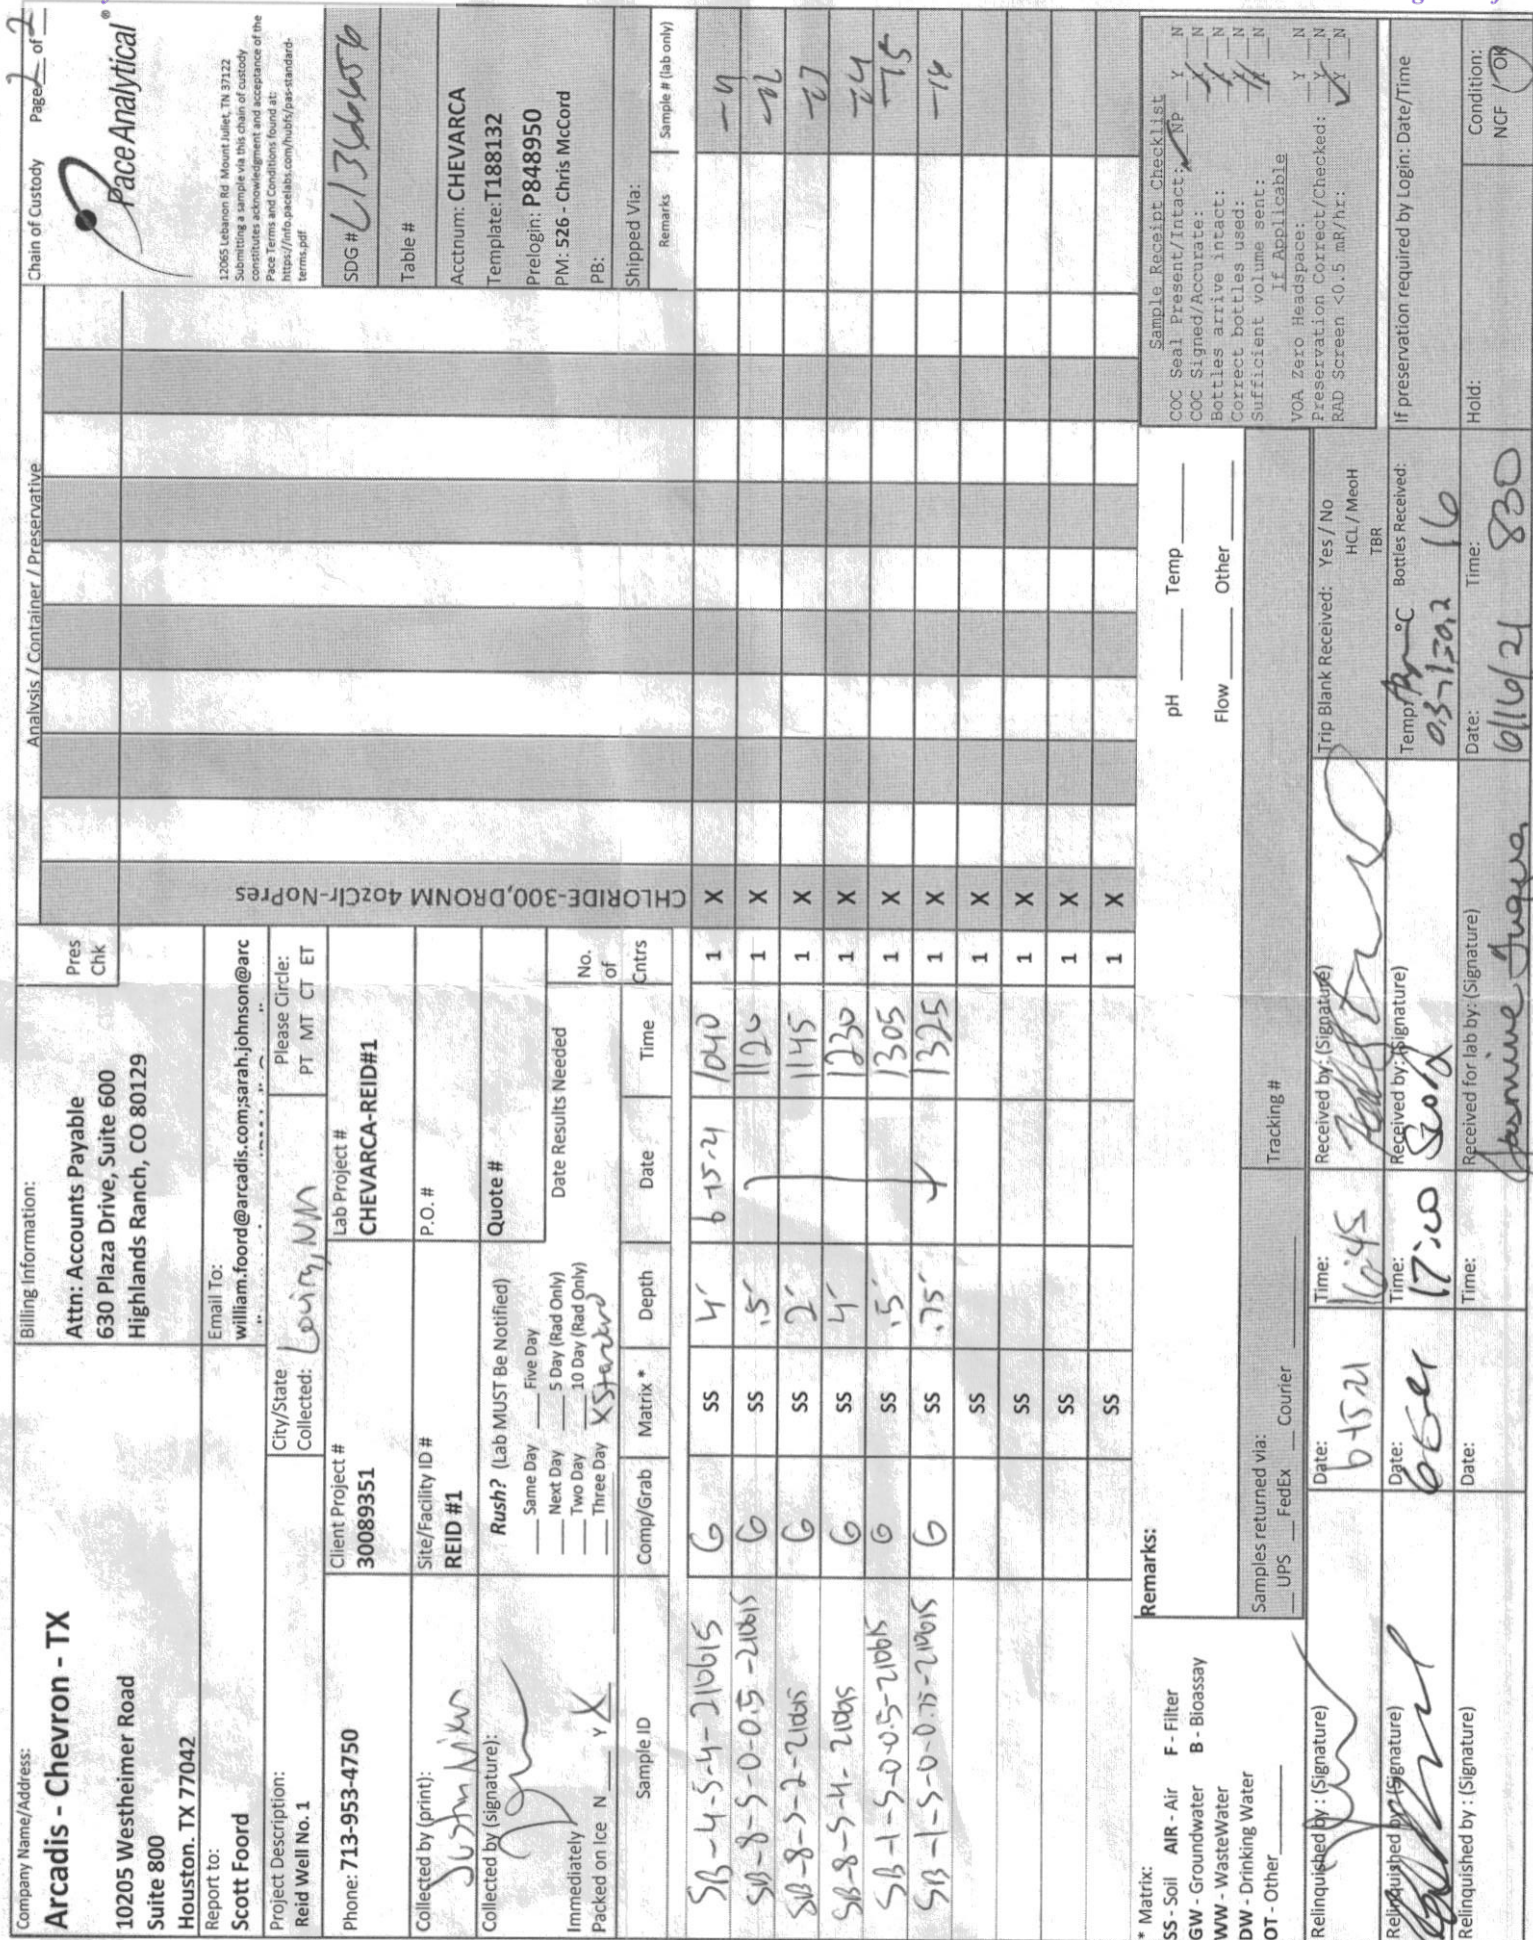 Company Name/Address:
Arcadis - Chevron - TX
10205 Westheimer Road
Suite 800
Houston. TX 77042
Billing Information:
Attn: Accounts Payable
630 Plaza Drive, Suite 600
Highlands Ranch, CO 80129
Pres
Chk
Analysis / Container / Preservative
Chain of Custody Page 2 of 2
Pace Analytical®
12065 Lebanon Rd Mount Juliet, TN 37122
Submitting a sample via this chain of custody
constitutes acknowledgment and acceptance of the
Pace Terms and Conditions found at:
https://info.pacelabs.com/hubfs/pas-standard-
terms.pdf
Report to:
Scott Foord
Email To:
william.foord@arcadis.com;sarah.johnson@arc
Project Description:
Reid Well No. 1
City/State
Collected: Loving, NM
Please Circle:
PT MT CT ET
Phone: 713-953-4750
Client Project #
30089351
Lab Project #
CHEVARCA-REID#1
Collected by (print):
Justin Nixon
Site/Facility ID #
REID #1
P.O. #
Collected by (signature):
Rush? (Lab MUST Be Notified)
Same Day Five Day
Next Day 5 Day (Rad Only)
Two Day 10 Day (Rad Only)
Three Day X Standard
Quote #
Date Results Needed
Immediately
Packed on Ice N Y X
No.
of
CHLORIDE-300,DRONM 4ozClr-NoPres
SDG # L1366656
Table #
Acctnum: CHEVARCA
Template: T188132
Prelogin: P848950
PM: 526 - Chris McCord
PB:
Shipped Via:
Sample ID Comp/Grab Matrix * Depth Date Time Cntrs Remarks Sample # (lab only)
SB-4-S-4-210615 G SS 4' 6-15-21 1040 1 X
SB-8-S-0-0.5-210615 G SS .5' 1120 1 X -12
SB-8-S-2-210615 G SS 2' 1145 1 X -13
SB-8-S-4-210615 G SS 4' 1230 1 X -14
SB-1-S-0-0.5-210615 G SS .5' 1305 1 X -15
SB-1-S-0-0.75-210615 G SS .75' 1325 1 X
SS 1 X
SS 1 X
SS 1 X
SS 1 X
* Matrix:
SS - Soil AIR - Air F - Filter
GW - Groundwater B - Bioassay
WW - WasteWater
DW - Drinking Water
OT - Other
Remarks:
pH Temp
Flow Other
Samples returned via:
UPS FedEx Courier
Tracking #
Sample Receipt Checklist
COC Seal Present/Intact: NP Y N
COC Signed/Accurate: Y N
Bottles arrive intact: Y N
Correct bottles used: Y N
Sufficient volume sent: Y N
If Applicable
VOA Zero Headspace: Y N
Preservation Correct/Checked: Y N
RAD Screen <0.5 mR/hr: Y N
Relinquished by : (Signature)
Date:
6-15-21
Time:
16:45
Received by: (Signature)
Trip Blank Received: Yes / No
HCL / MeoH
TBR
Relinquished by : (Signature)
Date:
Time:
17:00
Received by: (Signature)
Temp: °C Bottles Received:
16
If preservation required by Login: Date/Time
Relinquished by : (Signature)
Date:
Time:
Received for lab by: (Signature)
Jasmine
Date:
6/16/21
Time:
830
Hold:
Condition:
NCF / OK